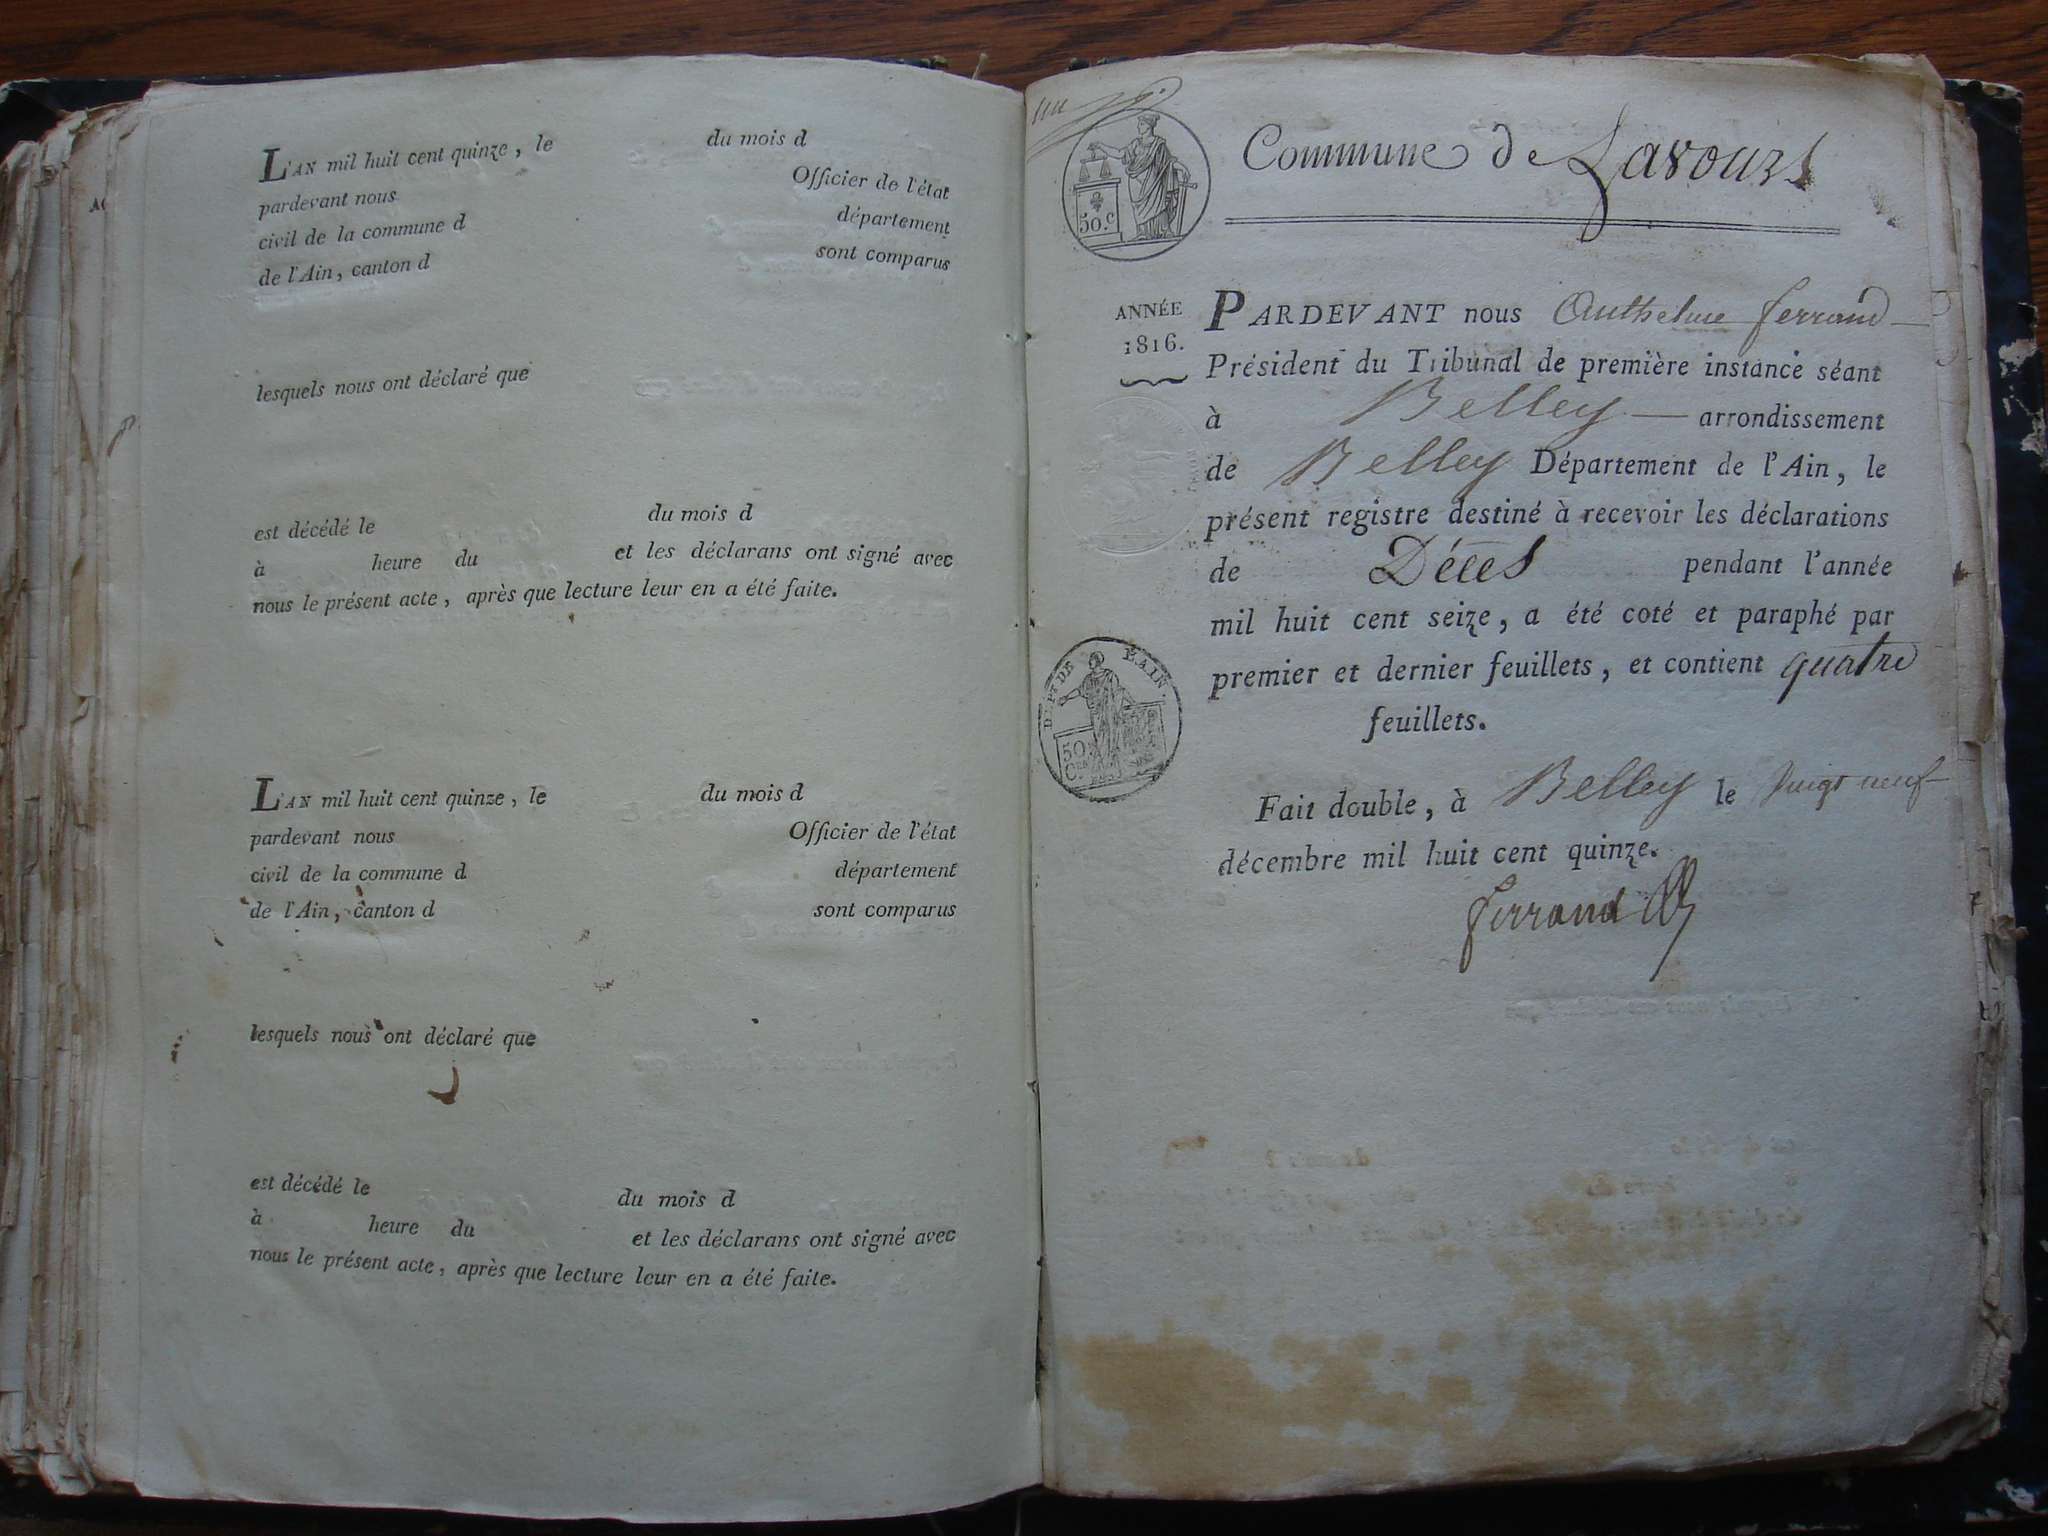 L'AN mil huit cent quinze, le du mois d
pardevant nous Officier de l'état
civil de la commune d département
de l'Ain, canton d sont comparus
lesquels nous ont déclaré que
est décédé le du mois d
à heure du et les déclarans ont signé avec
nous le présent acte, après que lecture leur en a été faite.
L'AN mil huit cent quinze, le du mois d
pardevant nous Officier de l'état
civil de la commune d département
de l'Ain, canton d sont comparus
lesquels nous ont déclaré que
est décédé le du mois d
à heure du et les déclarans ont signé avec
nous le présent acte, après que lecture leur en a été faite.
50.c
Commune de Lavours
ANNÉE
1816.
PARDEVANT nous Anthelme ferrand
Président du Tribunal de première instance séant
à Belley arrondissement
de Belley Département de l'Ain, le
présent registre destiné à recevoir les déclarations
de Décès pendant l'année
mil huit cent seize, a été coté et paraphé par
premier et dernier feuillets, et contient quatre
feuillets.
DEPT DE L'AIN.
50
Cen
Fait double, à Belley le vingt neuf
décembre mil huit cent quinze.
ferrand